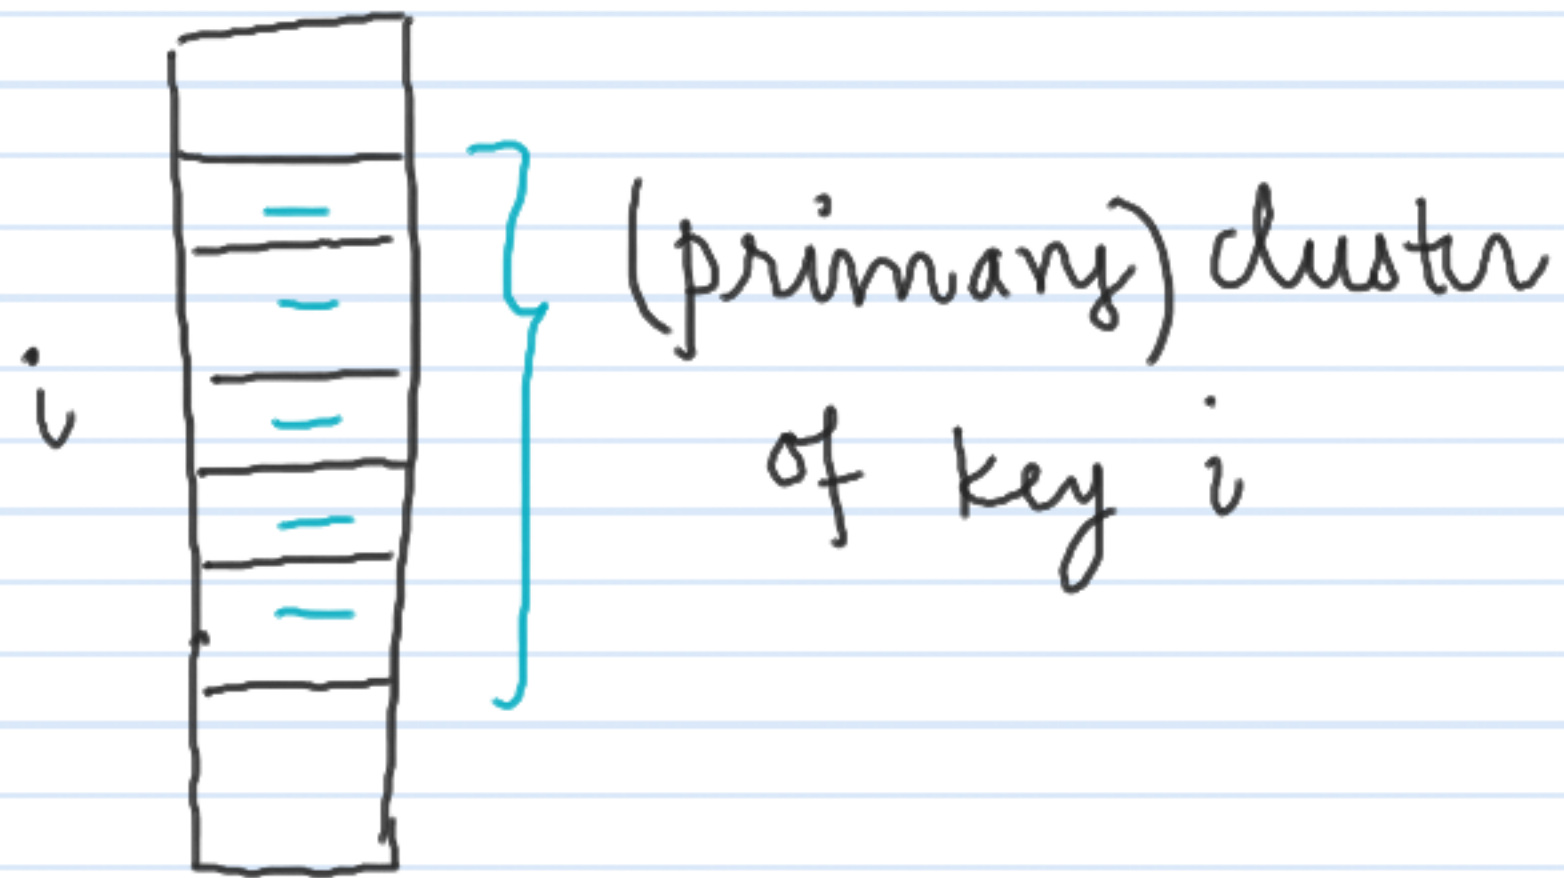 (primary) cluster
i
of key i